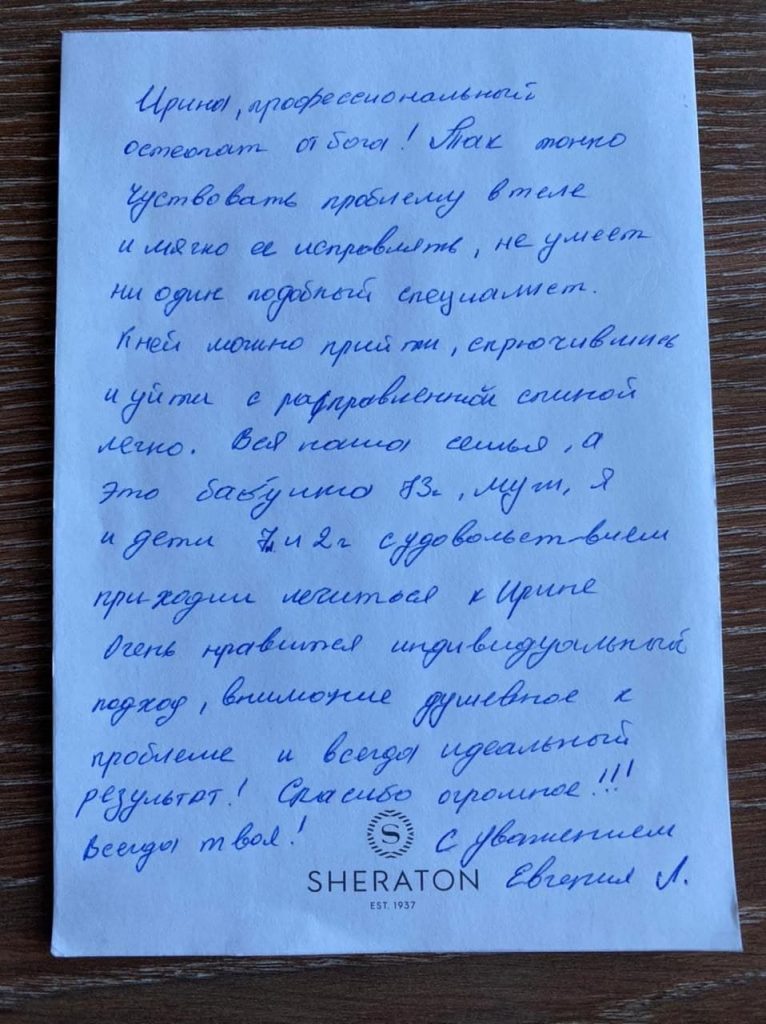 Ирина, профессиональный
остеопат от бога! Так тонко
чуствовать проблему в теле
и мягко ее исправлять, не умеет
ни один подобный специалист.
К ней можно прийти, скрючившись
и уйти с расправленной спиной
легко. Вся наша семья, а
это бабушка 73г, муж, я
и дети 7л и 2г с удовольствием
приходим лечиться к Ирине
Очень нравится индивидуальный
подход, внимание душевное к
проблеме и всегда идеальный
результат! Спасибо огромное!!!
Всегда твоя! С уважением
Евгения Л.
S
SHERATON
EST. 1937